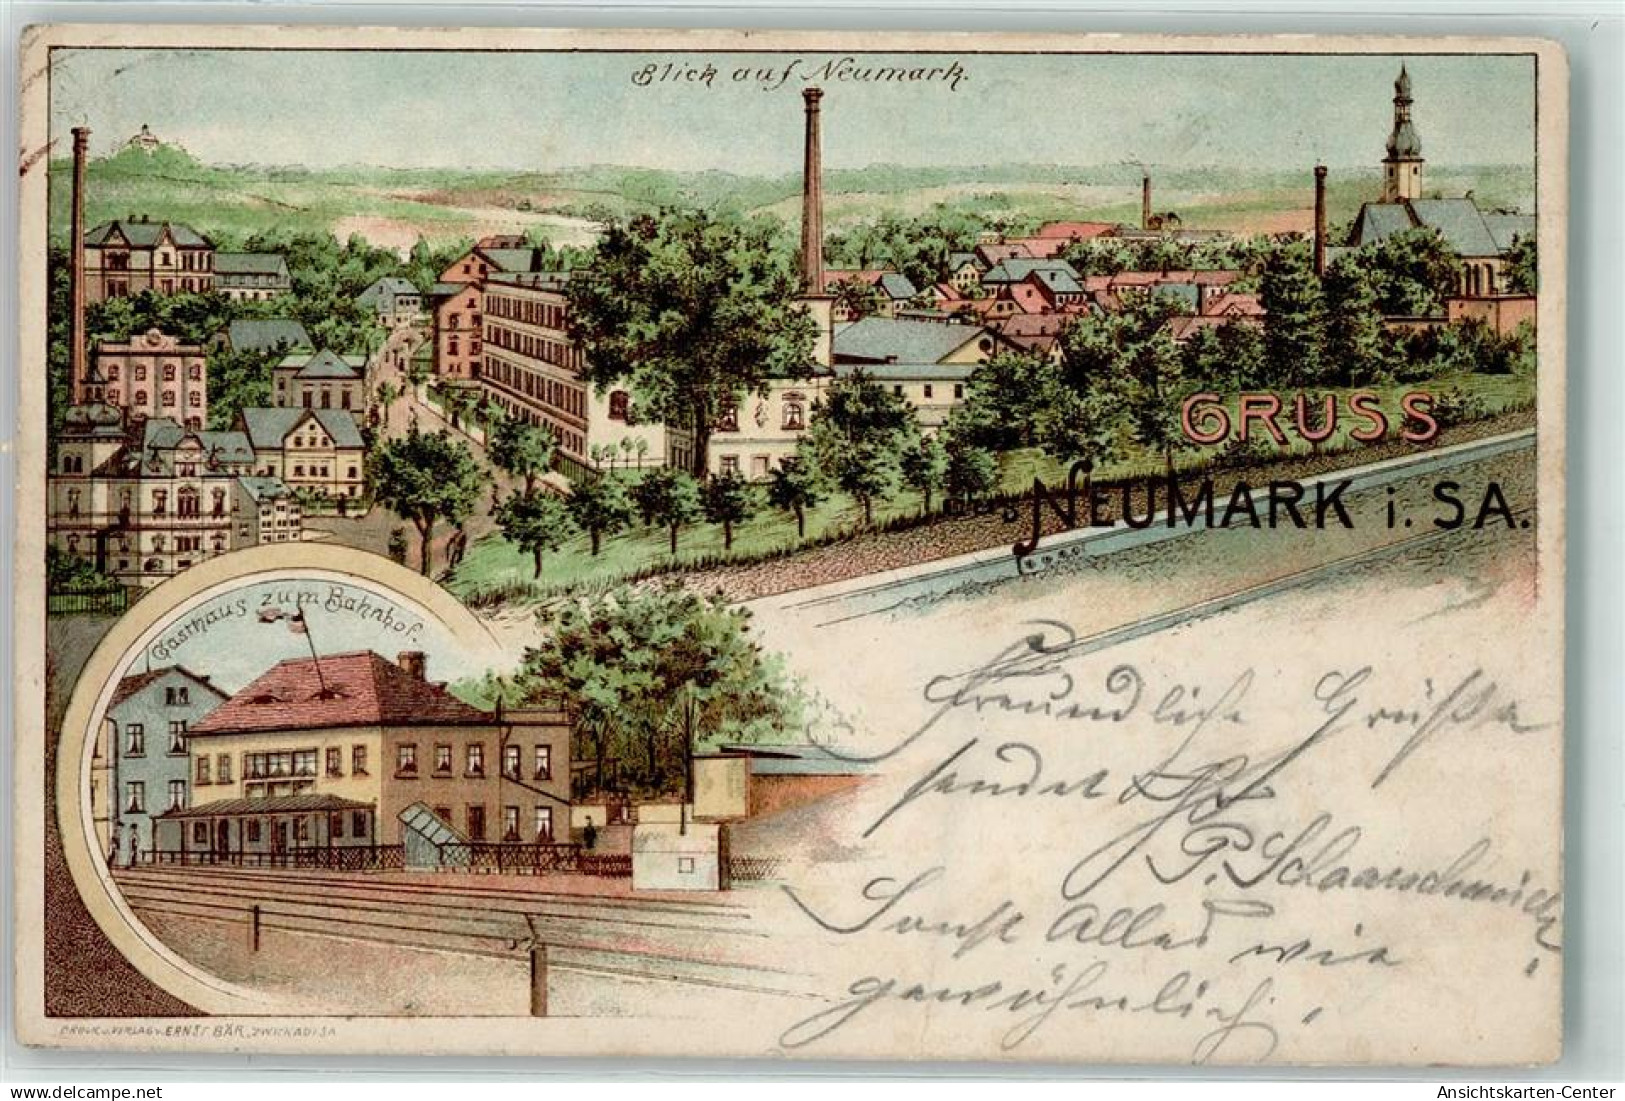 Blick auf Neumark.
GRUSS
aus NEUMARK i. SA.
Gasthaus zum Bahnhof.
Freundliche Grüße
sendet
P. Schaarschmidt
Sonst Alles wie
gewöhnlich.
DRUCK U. VERLAG V. ERNST BÄR, ZWICKAU I/SA
Ansichtskarten-Center